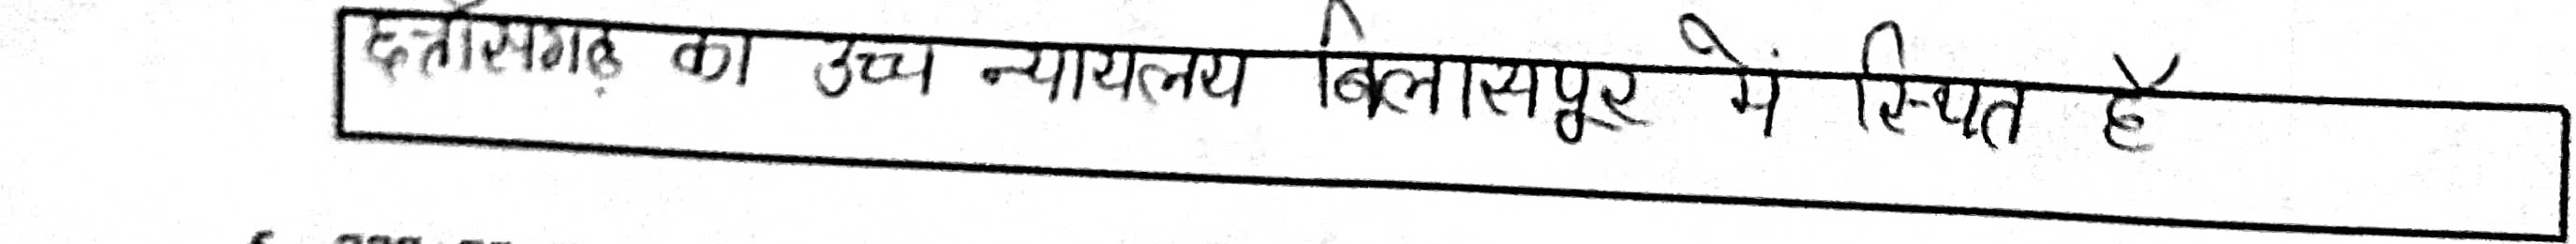 छत्तीसगढ़ का उच्च न्यायलय बिलासपूर में स्थित है